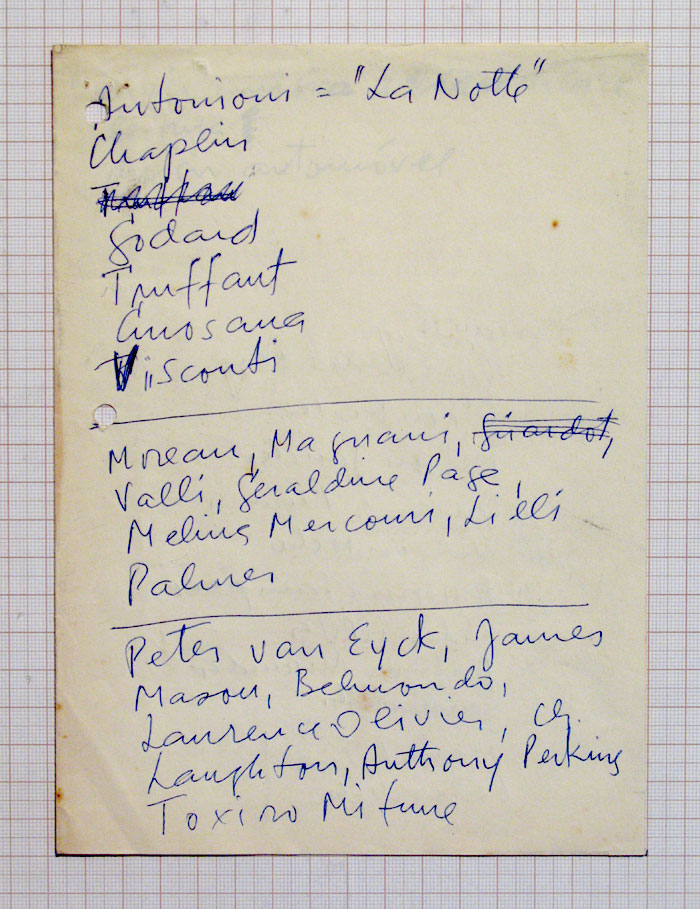 Antonioni = "La Notte"
Chaplin
Godard
Truffaut
Visconti
Moreau, Magnani, Girardot,
Valli, Geraldine Page,
Melina Mercouri, Lilli
Palmer
Peter van Eyck, James
Mason, Belmondo,
Laurence Olivier, Ch.
Laughton, Anthony Perkins
Toxiro Mifune